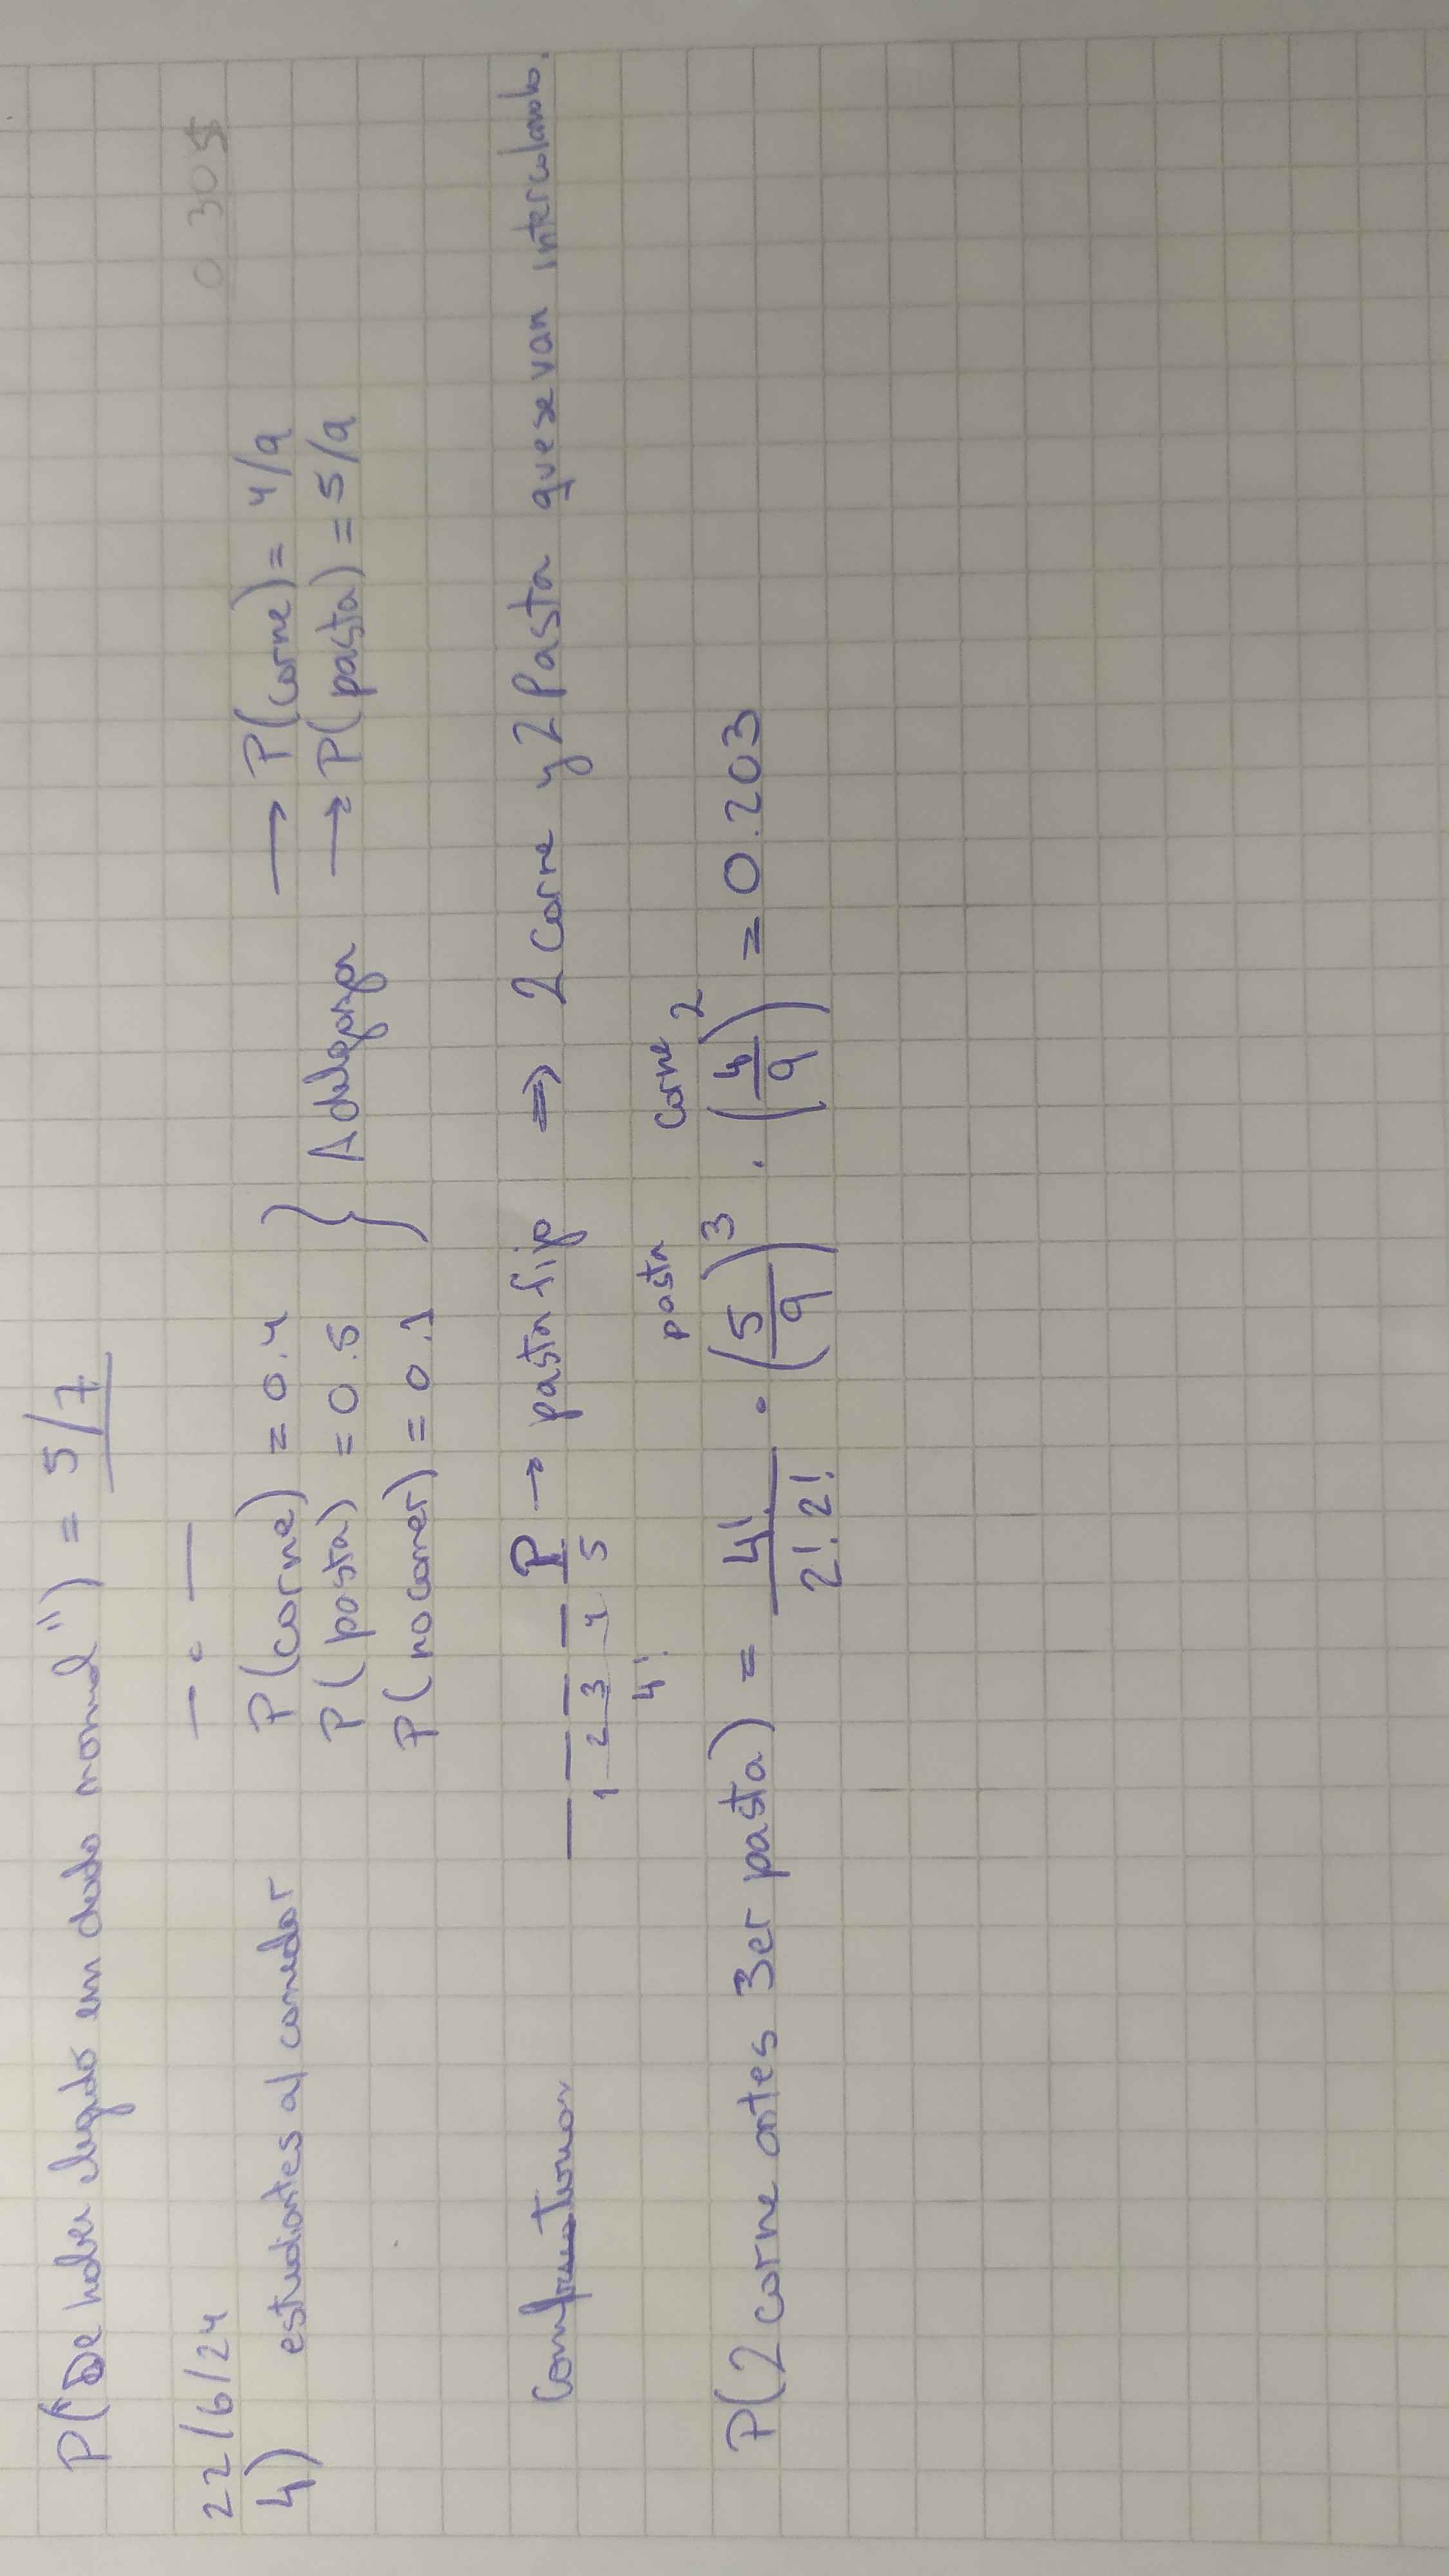 P("De haber elegido un dado normal") = 5/7
22/6/24
0.305
4) estudiantes al comedor P(carne) = 0.4 → P(carne) = 4/9
P(pasta) = 0.5 } Adelgazar → P(pasta) = 5/9
P(no comer) = 0.1
_ _ _ _ P → pasta fijo ⇒ 2 carne y 2 Pasta que se van intercalando.
1 2 3 4 5
4!
pasta carne
P(2 carne antes 3er pasta) = 4!/(2! 2!) · (5/9)^3 · (4/9)^2 = 0.203